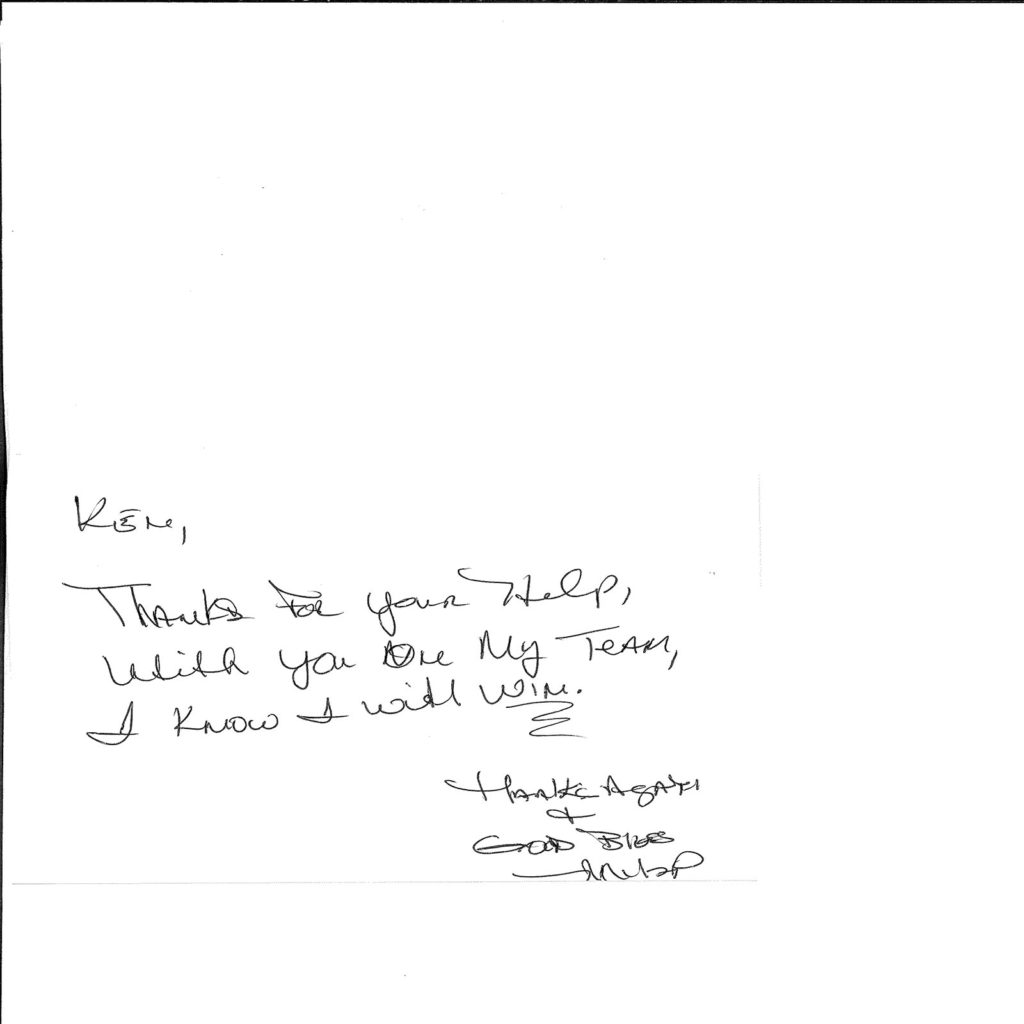 Ken,
Thanks For your Help,
With you on My Team,
I know I will win.
Thanks Again
&
God Bless